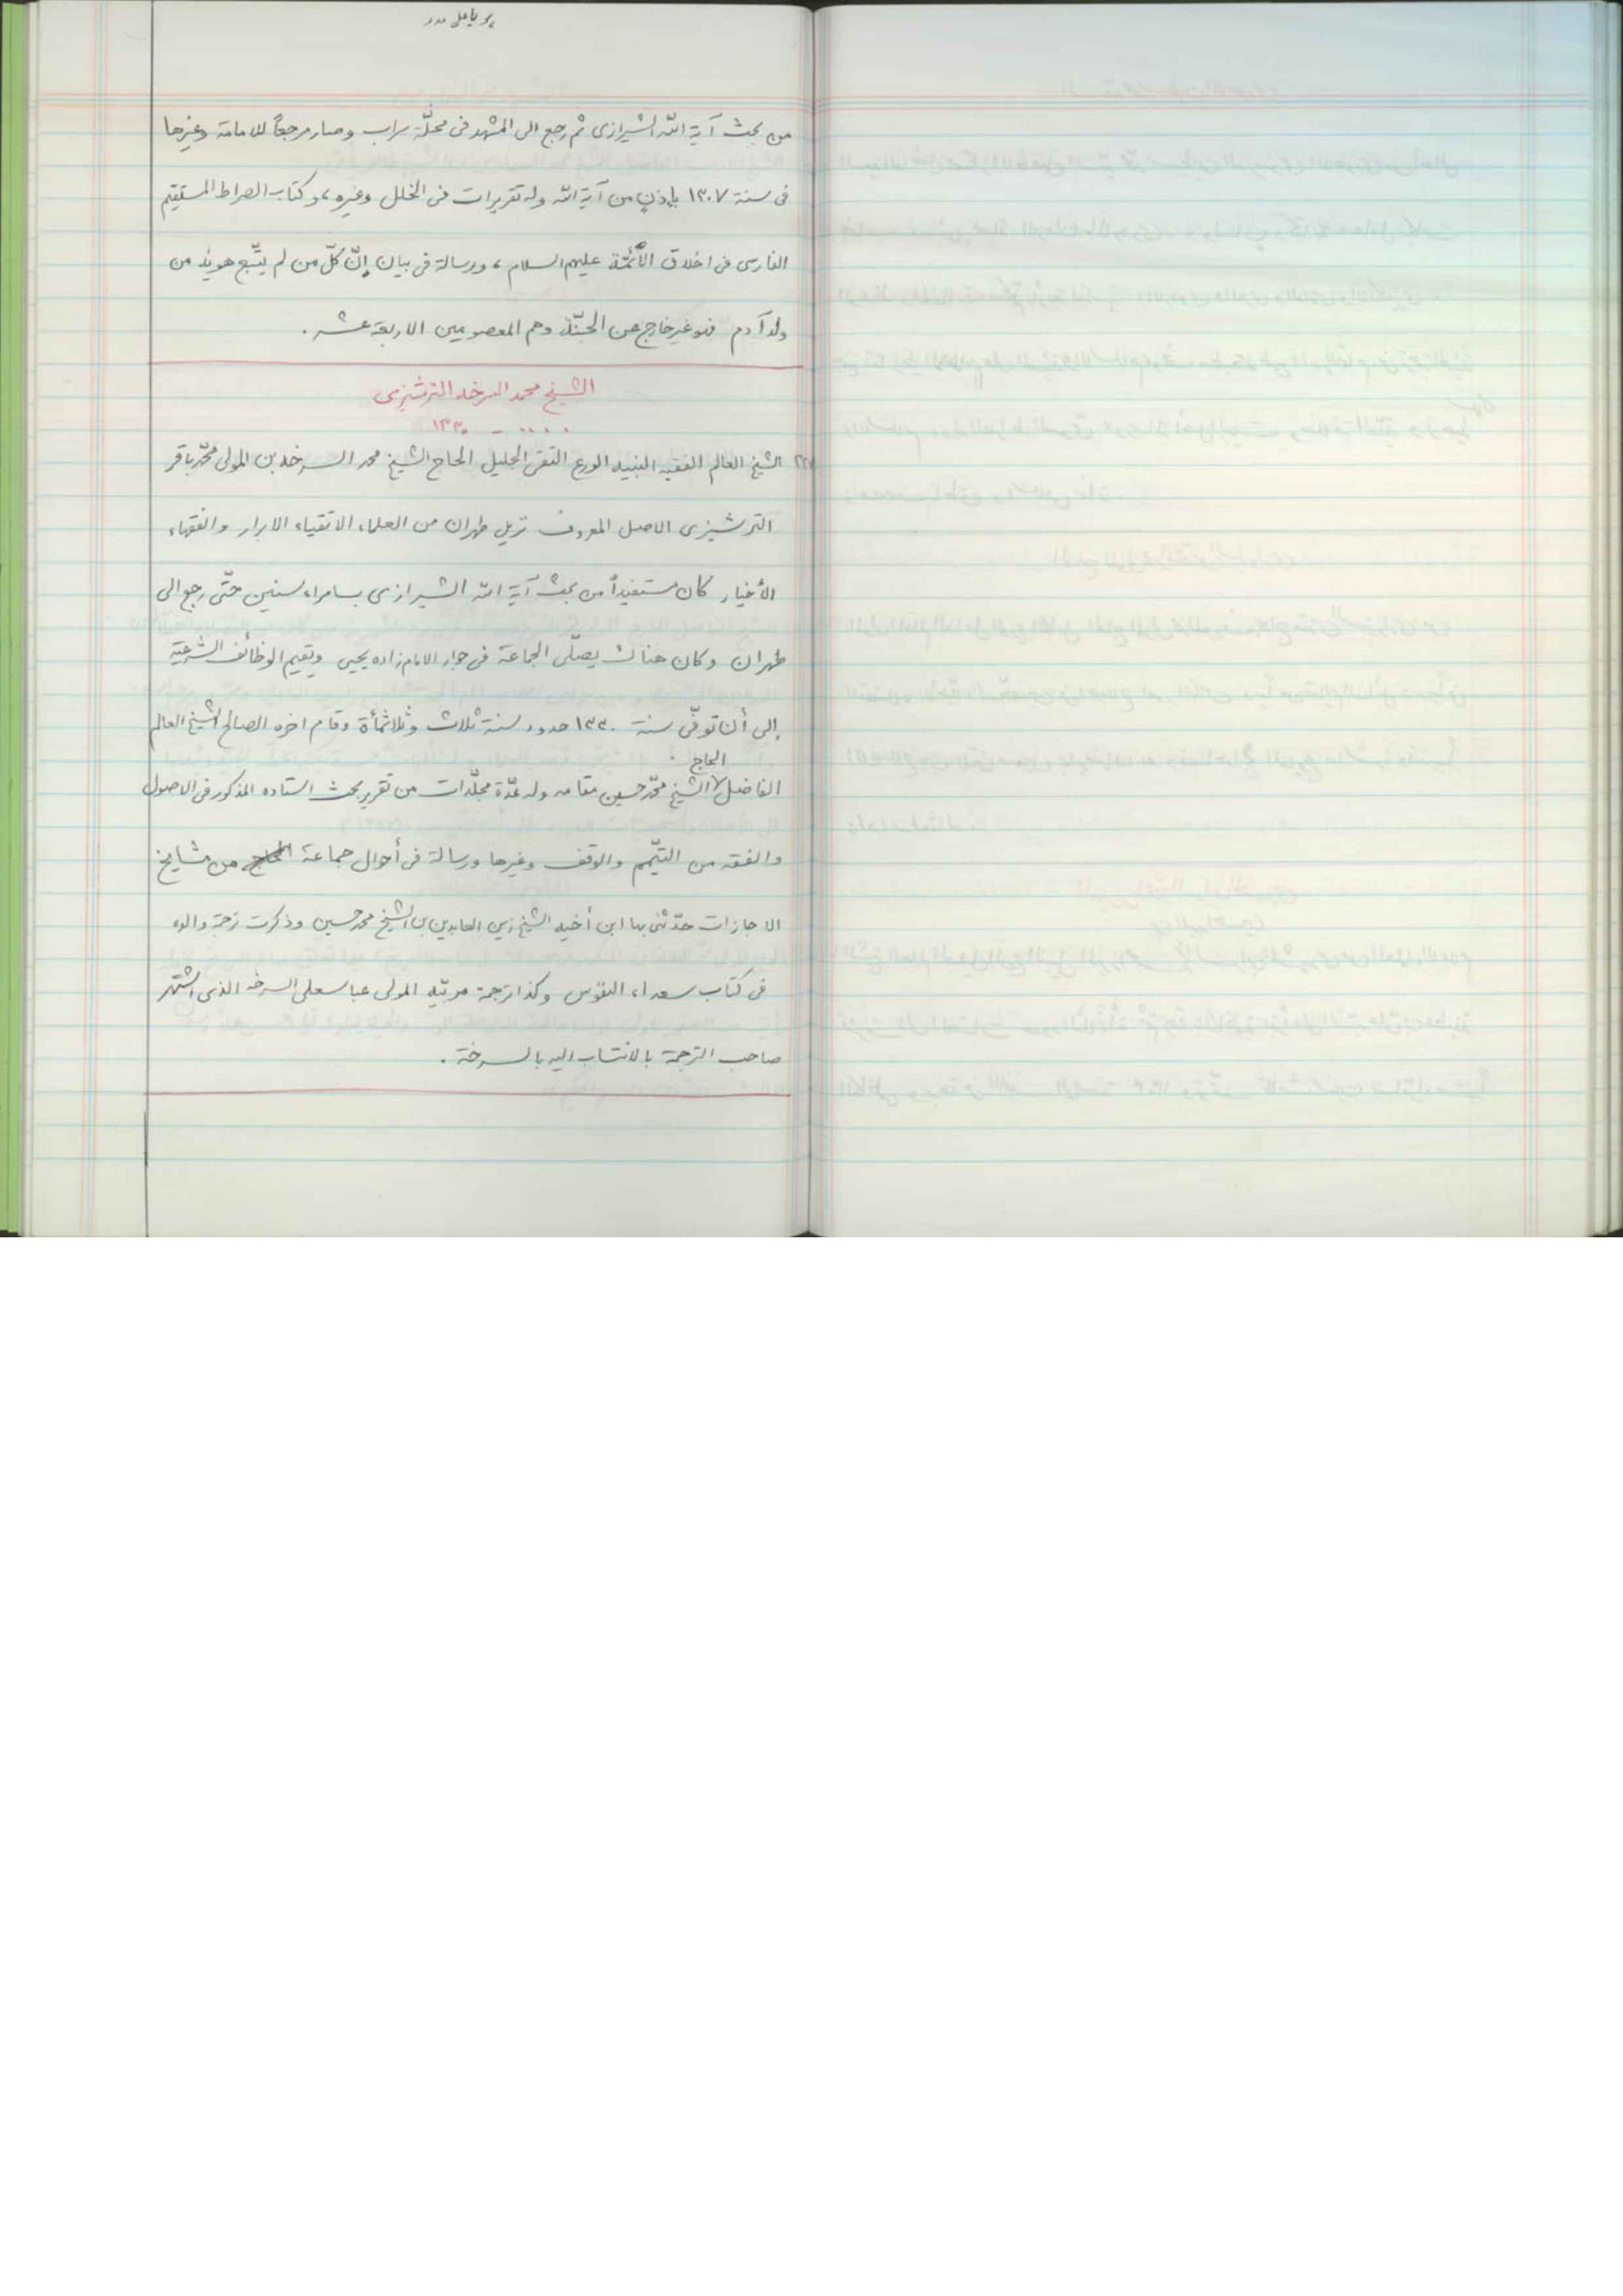 من بحث آية اللّه الشيرازى ثم رجع الى المشهد فى محلّة سراب وصار مرجعاً للامامة وغيرها
فى سنة ١٣٠٧ بإذنٍ من آية اللّه وله تقريرات فى الخلل وغيره، وكتاب الصراط المستقيم
الفارسى فى اخلاق الأئمّة عليهم السلام، ورسالة فى بيان إنّ كلّ من لم يتّبع هويٰه من
ولد آدم فهو غير خارج عن الجنّة وهم المعصومين الاربعة عشر.
الشيخ محمد السرخه الترشيزى
.... - ١٣٣٠
الشيخ العالم الفقيه النبيه الورع التقى الجليل الحاج الشيخ محمد السرخه بن المولى محّمد باقر
الترشيزى الاصل المعروف نزيل طهران من العلماء الاتقياء الابرار والفقهاء
الأخيار كان مستفيداً من بحث آية اللّه الشيرازى بسامراء سنين حتّى رجع الى
طهران وكان هناك يصلّى الجماعة فى جوار الامام زاده يحيى ويقيم الوظائف الشرعية
إلى أن توفّى سنة ١٣٣٠ حدود سنة ثلاث وثلاثمأة وقام اخوه الصالح الشيخ العالم
الفاضل الحاج الشيخ محّمد حسين مقامه وله عدّة مجلّدات من تقرير بحث استاده المذكور فى الاصول
والفقه من التيّمم والوقف وغيرها ورسالة فى أحوال جماعة من مشايخ
الاجازات حدّثنى بها ابن أخيه الشيخ زين العابدين بن الشيخ محمد حسين وذكرت ترجمة والده
فى كتاب سعداء النفوس وكذا ترجمة مربّيه المولى عباسعلى السرخه الذى اشتهر
صاحب الترجمة بالانتساب اليه بالسرخة.